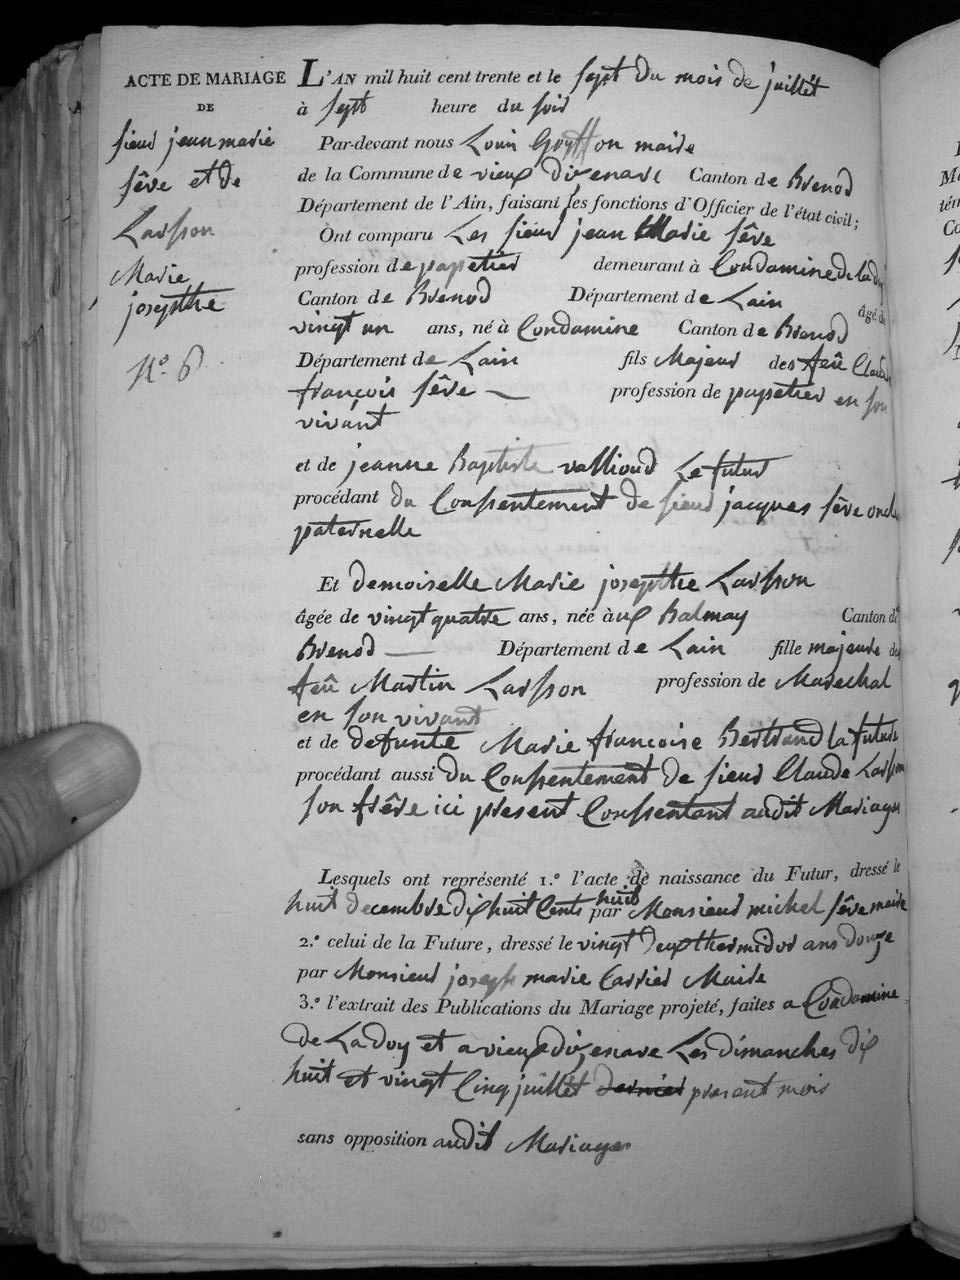 ACTE DE MARIAGE
DE
sieur jean marie
sêve et de
Larsson
Marie
josepthe
N.º 6
L'AN mil huit cent trente et le sept du mois de juillêt
à sept heure du soir
Par-devant nous Louis maire
de la Commune de vieux dizenave Canton de Brenod
Département de l'Ain, faisant les fonctions d'Officier de l'état civil;
Ont comparu Les sieur jean Marie sêve
profession de papetier demeurant à Condamine de Ladoy
Canton de Brenod Département de Lain âgé de
vingt un ans, né à Condamine Canton de Brenod
Département de Lain fils Majeur des feû Claude
françois sêve profession de papetier en son
vivant
et de jeanne Baptiste vallioud Le futur
procédant du Conssentement de sieur jacques sêve oncle
paternelle
Et demoiselle Marie josepthe Larsson
âgée de vingt quatre ans, née à ux Balmay Canton de
Brenod Département de Lain fille majeure de
feû Martin Larsson profession de Marechal
en son vivant
et de defunte Marie francoise Bertrand la future
procédant aussi du Conssentement de sieur Claude Larsson
son frêre ici present Conssentant audit Mariages
Lesquels ont représenté 1.º l'acte de naissance du Futur, dressé le
huit decembre dix huit Cents huit par Monsieur michel sêve maire
2.º celui de la Future, dressé le vingt deux thermidor ans douze
par Monsieur joseph marie Carrier Maire
3.º l'extrait des Publications du Mariage projeté, faites a Condamine
de Ladoy et a vieux dizenave Les dimanches dix
huit et vingt Cinq juillêt dernier present mois
sans opposition audit Mariages